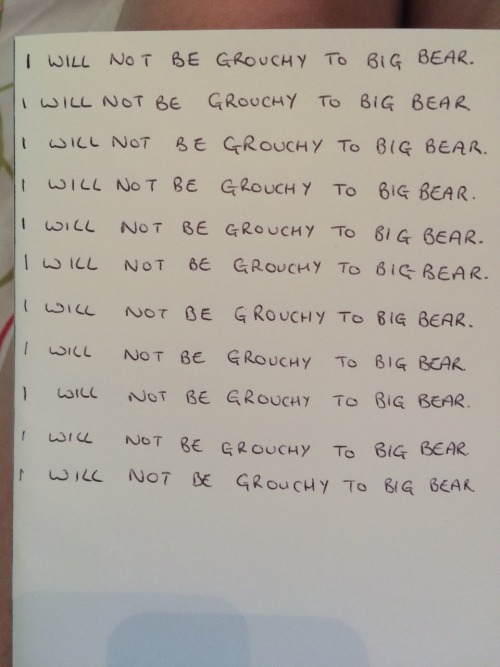 I WILL NOT BE GROUCHY TO BIG BEAR.
I WILL NOT BE GROUCHY TO BIG BEAR
I WILL NOT BE GROUCHY TO BIG BEAR.
I WILL NOT BE GROUCHY TO BIG BEAR.
I WILL NOT BE GROUCHY TO BIG BEAR.
I WILL NOT BE GROUCHY TO BIG BEAR.
I WILL NOT BE GROUCHY TO BIG BEAR.
I WILL NOT BE GROUCHY TO BIG BEAR
I WILL NOT BE GROUCHY TO BIG BEAR.
I WILL NOT BE GROUCHY TO BIG BEAR.
I WILL NOT BE GROUCHY TO BIG BEAR